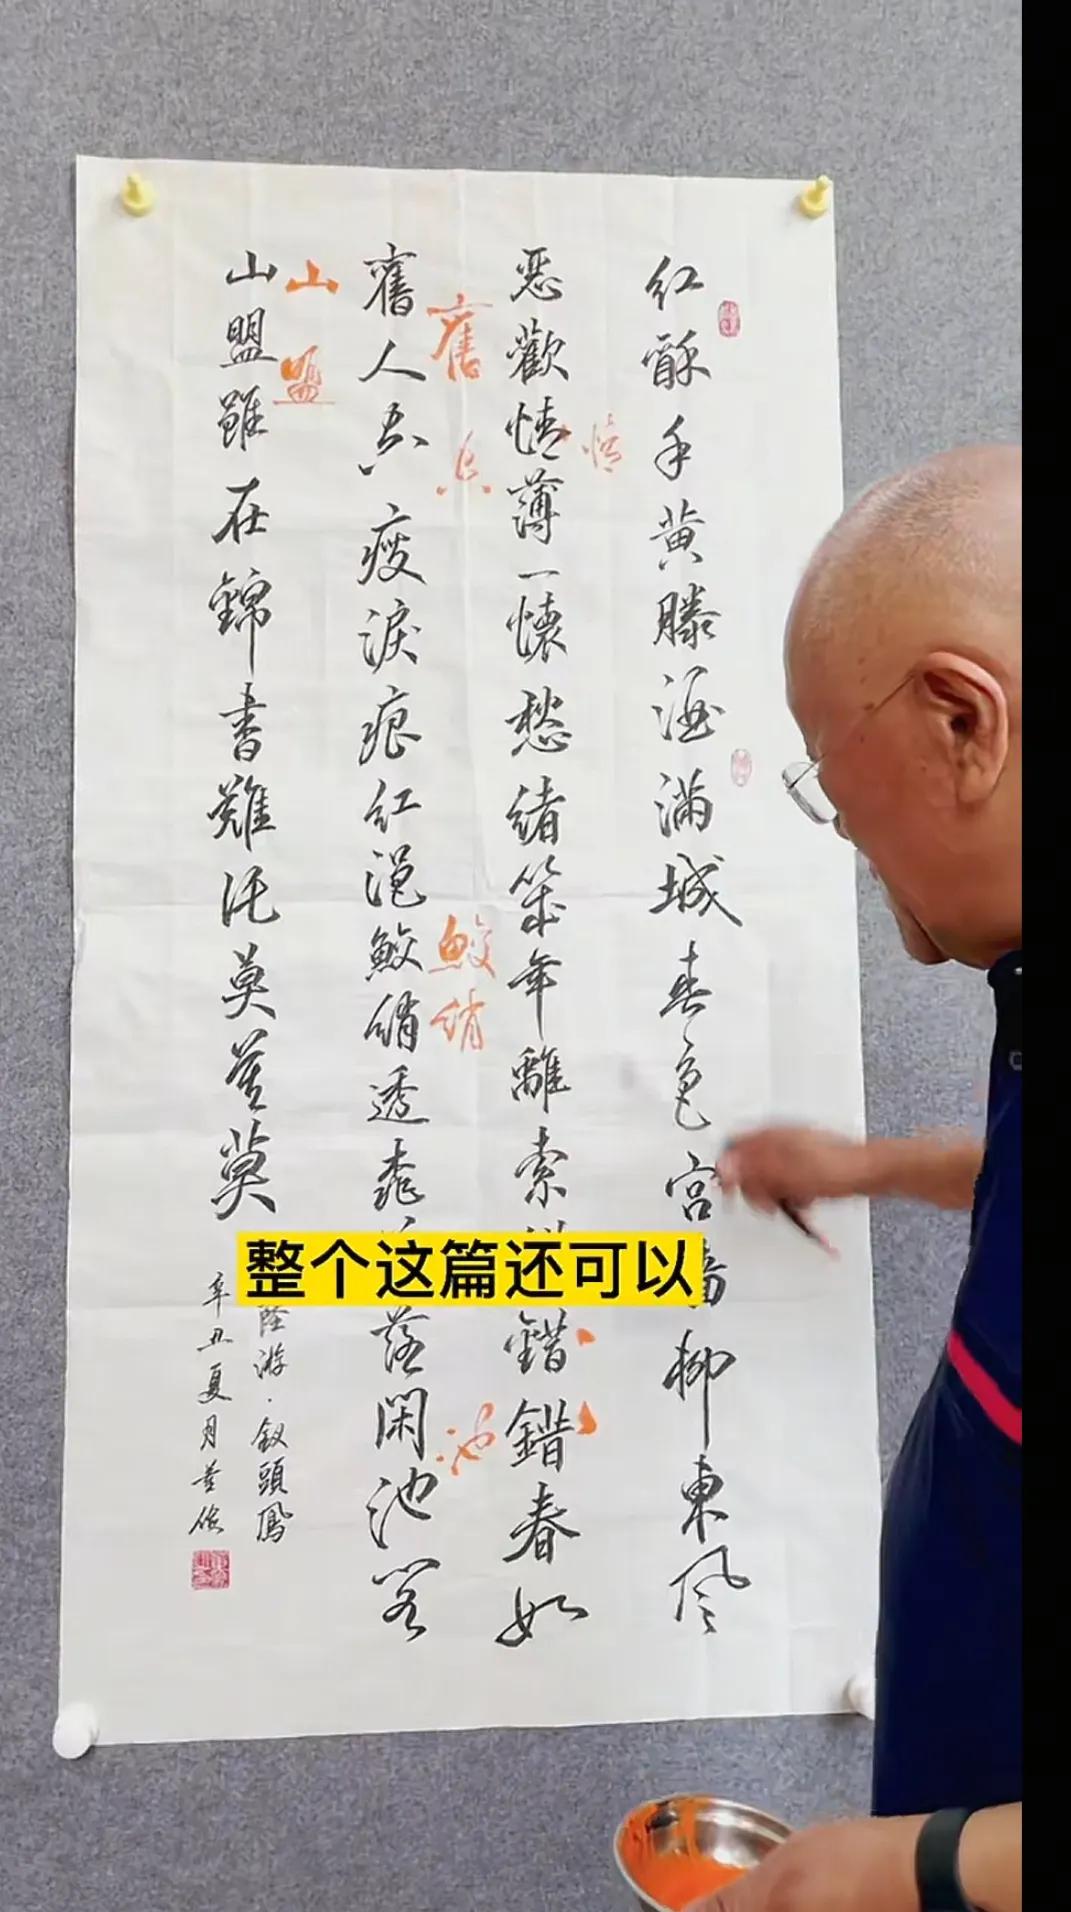 红酥手黄滕酒滿城春色宫柳東风
惡歡情薄一懷愁緒幾年離索錯錯春如
情
舊人空瘦淚痕红浥鮫綃透桃落閑池閣
舊空鮫綃池
山盟雖在錦書難托莫莫莫
山盟
陸游·釵頭鳳
辛丑夏月
整个这篇还可以